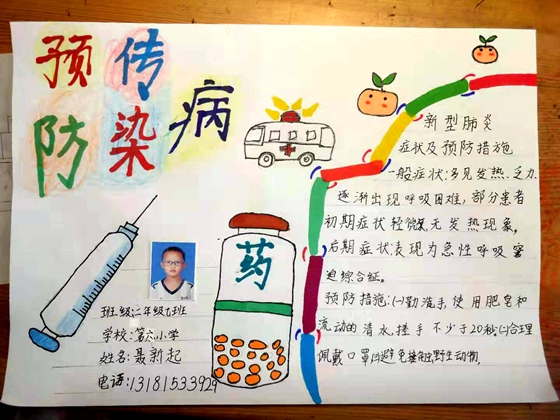 预防
传染
病
药
班级:二年级七班
学校:小学
姓名:聂新起
电话:13181533929
新型肺炎
症状及预防措施
一般症状:多见发热、乏力、
逐渐出现呼吸困难,部分患者
初期症状轻微,无发热现象,
后期症状表现为急性呼吸窘
迫综合征。
预防措施:(一)勤洗手,使用肥皂和
流动的清水搓手不少于20秒;(二)合理
佩戴口罩避免接触野生动物。